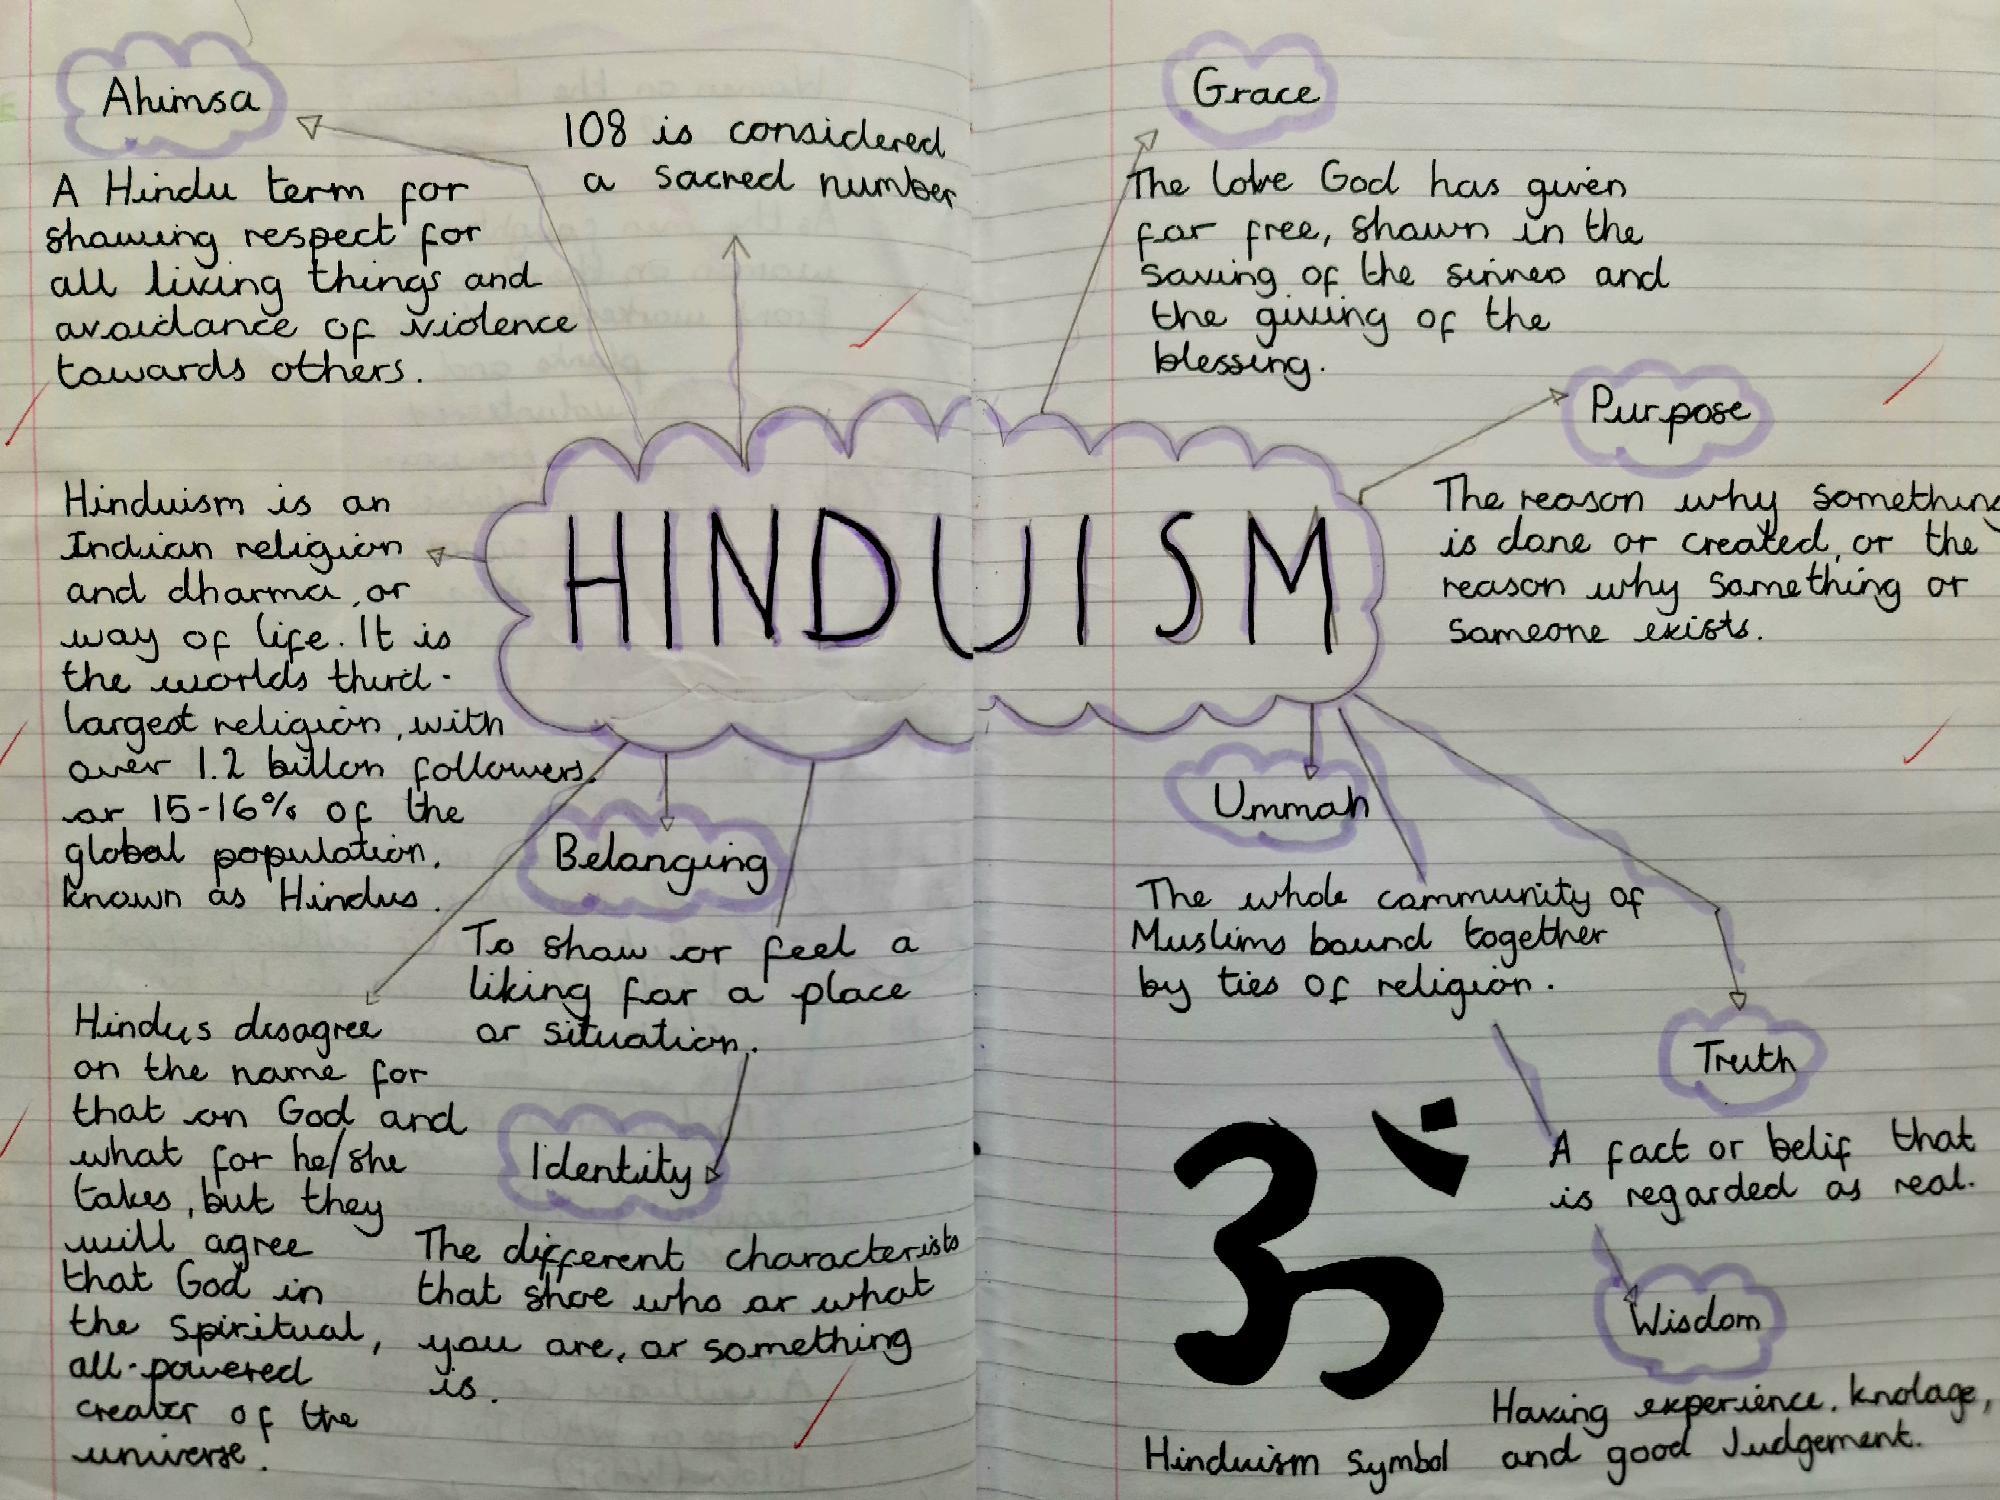 Ahimsa
A Hindu term for
showing respect for
all living things and
avoidance of violence
towards others.
108 is considered
a sacred number
Grace
The love God has given
for free, shown in the
saving of the sinnes and
the giving of the
blessing.
Purpose
The reason why something
is done or created, or the
reason why something or
someone exists.
HINDUISM
Hinduism is an
Indian religion
and dharma, or
way of life. It is
the worlds third-
largest religion, with
over 1.2 billon followers.
or 15-16% of the
global population.
known as Hindus.
Belonging
To show or feel a
liking for a place
or situation.
Ummah
The whole community of
Muslims bound together
by ties of religion.
Hindus disagree
on the name for
that on God and
what for he/she
takes, but they
will agree
that God in
the spiritual,
all-powered
creater of the
universe.
Identity
The different characterists
that shoe who or what
you are, or something
is.
Truth
A fact or belif that
is regarded as real.
ॐ
Wisdom
Having experience, knolage,
and good Judgement.
Hinduism Symbol